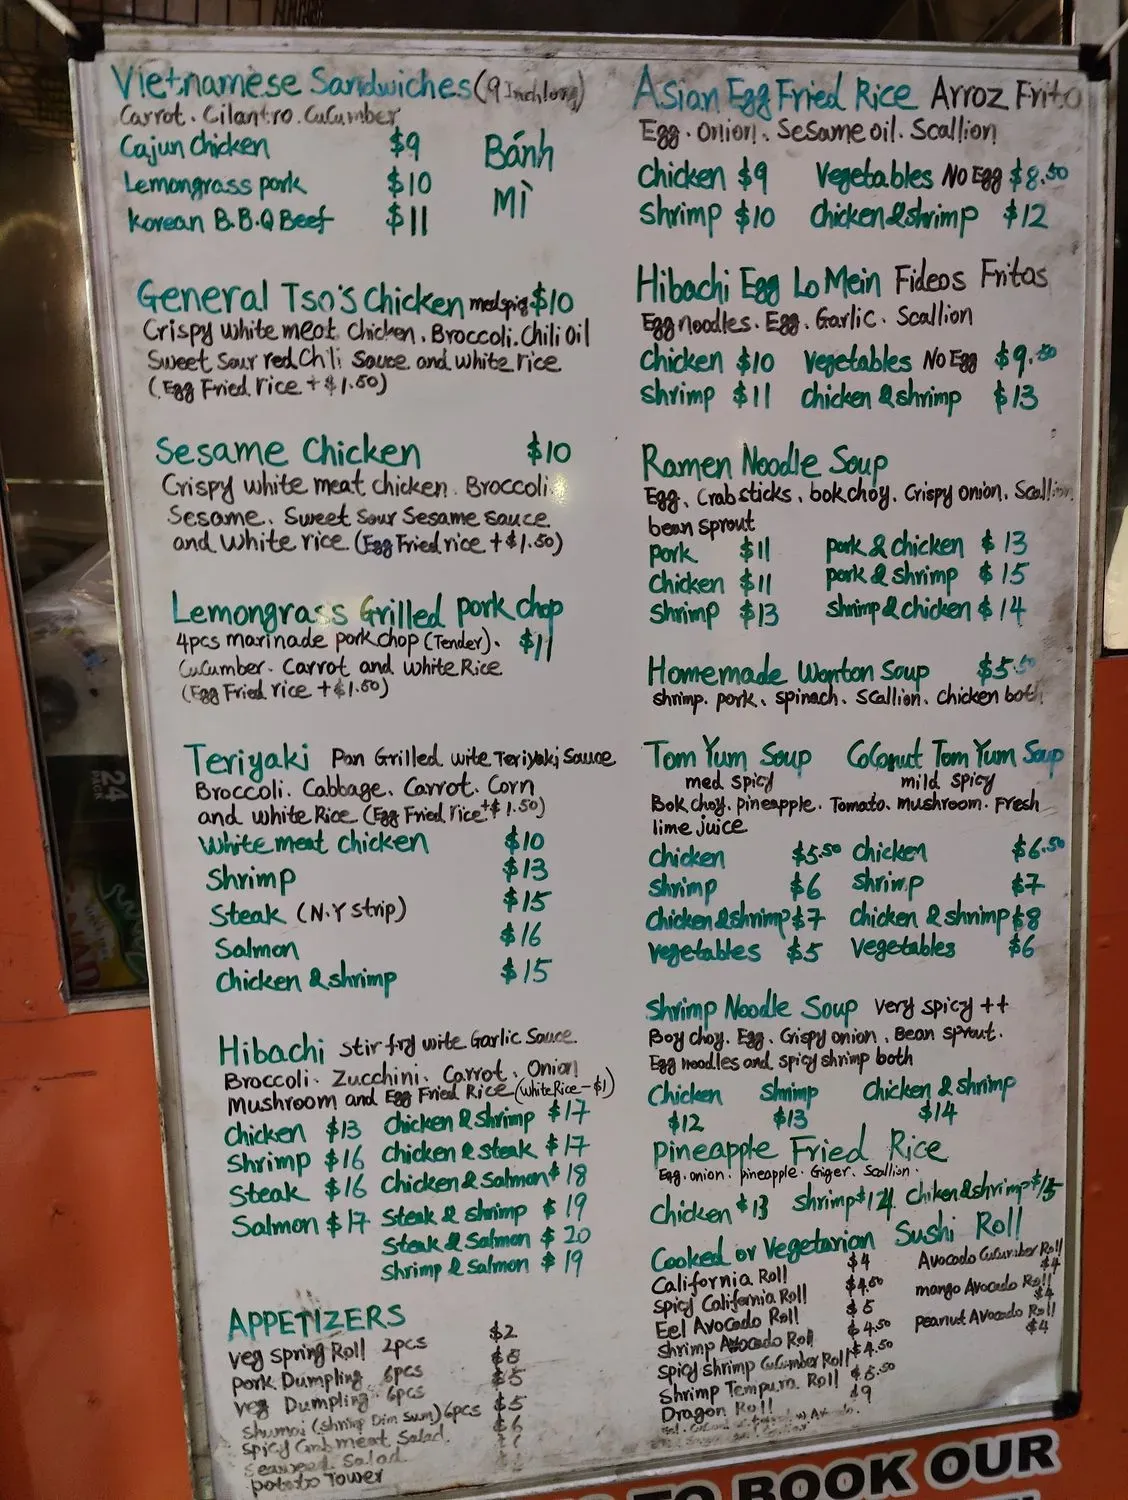 Vietnamese Sandwiches (9 Inch long)
Carrot. Cilantro. Cucumber
Cajun Chicken $9
Lemongrass pork $10
Korean B.B.Q Beef $11
Bánh
Mì
General Tso's Chicken med spicy $10
Crispy white meat chicken. Broccoli. Chili Oil
Sweet Sour red Chili Sauce and white rice
(Egg Fried rice + $1.50)
Sesame Chicken $10
Crispy white meat chicken. Broccoli.
Sesame. Sweet Sour Sesame sauce
and white rice (Egg Fried rice + $1.50)
Lemongrass Grilled pork chop
4pcs marinade pork chop (Tender). $11
Cucumber. Carrot and white Rice
(Egg Fried rice + $1.50)
Teriyaki Pan Grilled wite Teriyaki Sauce
Broccoli. Cabbage. Carrot. Corn
and white Rice (Egg Fried rice + $1.50)
white meat chicken $10
Shrimp $13
Steak (N.Y strip) $15
Salmon $16
Chicken & shrimp $15
Hibachi stir fry wite Garlic Sauce.
Broccoli. Zucchini. Carrot. Onion
Mushroom and Egg Fried Rice (white Rice - $1)
Chicken $13 Chicken & shrimp $17
Shrimp $16 Chicken & steak $17
Steak $16 Chicken & Salmon $18
Salmon $17 Steak & shrimp $19
Steak & Salmon $20
Shrimp & Salmon $19
APPETIZERS
veg spring Roll 2pcs $2
pork Dumpling 6pcs
veg Dumpling 6pcs $5
shumai (shrimp Dim Sum) 6pcs $5
spicy Crab meat Salad. $6
Seaweed Salad.
potato Tower
Asian Egg Fried Rice Arroz Frito
Egg. Onion. Sesame oil. Scallion
Chicken $9 Vegetables No Egg $8.50
Shrimp $10 chicken & shrimp $12
Hibachi Egg Lo Mein Fideos Fritos
Egg noodles. Egg. Garlic. Scallion
Chicken $10 vegetables No Egg $9.50
Shrimp $11 chicken & shrimp $13
Ramen Noodle Soup
Egg. Crab sticks. bok choy. Crispy onion. Scallion.
bean sprout
pork $11 pork & chicken $13
Chicken $11 pork & shrimp $15
Shrimp $13 shrimp & chicken $14
Homemade Wonton Soup $5.50
shrimp. pork. spinach. Scallion. chicken both
Tom Yum Soup Coconut Tom Yum Soup
med spicy mild spicy
Bok choy. pineapple. Tomato. mushroom. Fresh
lime juice
Chicken $5.50 Chicken $6.50
Shrimp $6 Shrimp $7
Chicken & shrimp $7 Chicken & shrimp $8
vegetables $5 vegetables $6
Shrimp Noodle Soup very spicy ++
Boy choy. Egg. Crispy onion. Bean sprout.
Egg noodles and spicy shrimp both
Chicken Shrimp Chicken & shrimp
$12 $13 $14
Pineapple Fried Rice
Egg. onion. pineapple. Giger. Scallion.
Chicken $13 shrimp $14 Chiken & shrimp $15
Cooked or Vegetarian Sushi Roll
California Roll $4
spicy California Roll $4.50
Eel Avocado Roll $5
shrimp Avocado Roll $4.50
spicy shrimp Cucumber Roll $4.50
Shrimp Tempura Roll
Dragon Roll $9
Avocado Cucumber Roll
$4
mango Avocado Roll
$4
peanut Avocado Roll
$4
24
TO BOOK OUR